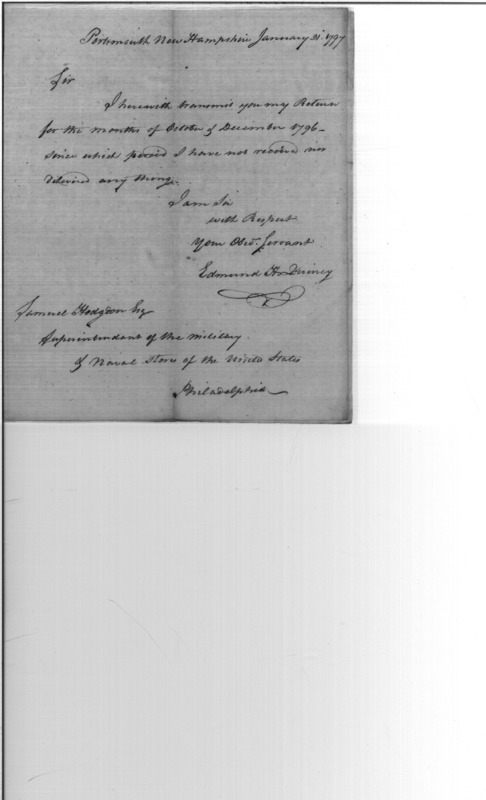 Portsmouth New Hampshire January 31st 1797
Sir
I herewith transmit you my Return
for the months of October & December 1796 -
since which period I have not received nor
delivered any thing.
I am Sir
with Respect
Your Obedt. Servant
Edmund H. Quincy
Samuel Hodgdon Esq
Superintendant of the military
& Naval Stores of the United States
Philadelphia